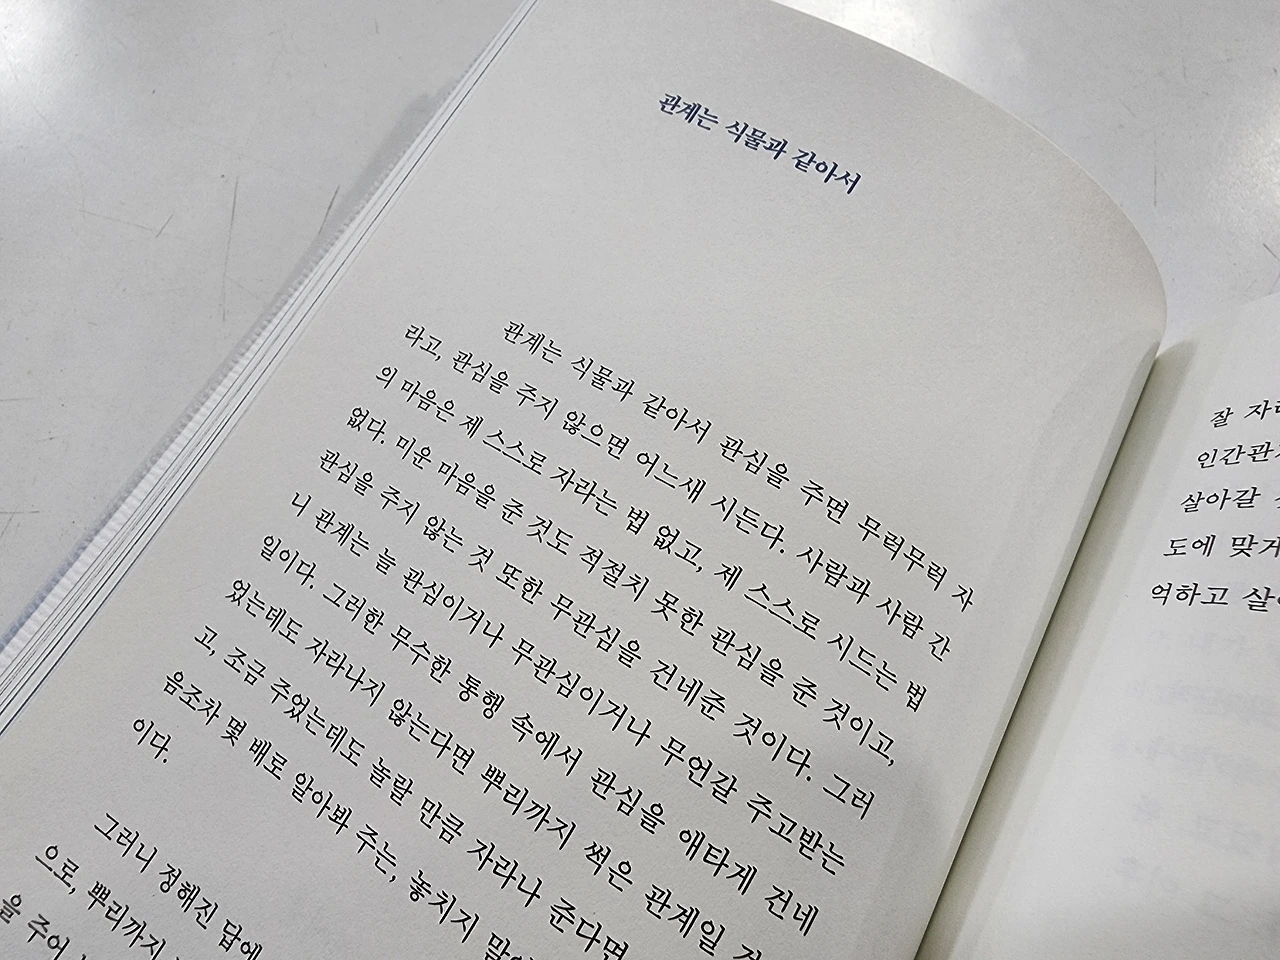 관계는 식물과 같아서
관계는 식물과 같아서 관심을 주면 무럭무럭 자
라고, 관심을 주지 않으면 어느새 시든다. 사람과 사람 간
의 마음은 제 스스로 자라는 법 없고, 제 스스로 시드는 법
없다. 미운 마음을 준 것도 적절치 못한 관심을 준 것이고,
관심을 주지 않는 것 또한 무관심을 건네준 것이다. 그러
니 관계는 늘 관심이거나 무관심이거나 무언갈 주고받는
일이다. 그러한 무수한 통행 속에서 관심을 애타게 건네
었는데도 자라나지 않는다면 뿌리까지 썩은 관계일
고, 조금 주었는데도 놀랄 만큼 자라나 준다면
음조차 몇 배로 알아봐 주는, 놓치지
이다.
그러니 정해진 답에
으로, 뿌리까지
을 주어
잘
인간관
살아갈
도에 맞게
억하고